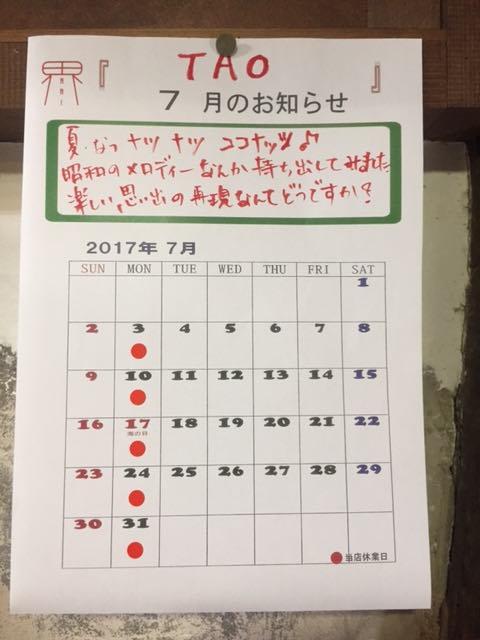 界『 TAO 』
7 月のお知らせ
夏・なつ ナツ ナツ ココナッツ♪
昭和のメロディーなんか持ち出してみました
楽しい思い出の再現なんてどうですか？
2017年 7月
SUN MON TUE WED THU FRI SAT
1
2 3 4 5 6 7 8
9 10 11 12 13 14 15
16 17 18 19 20 21 22
海の日
23 24 25 26 27 28 29
30 31
当店休業日